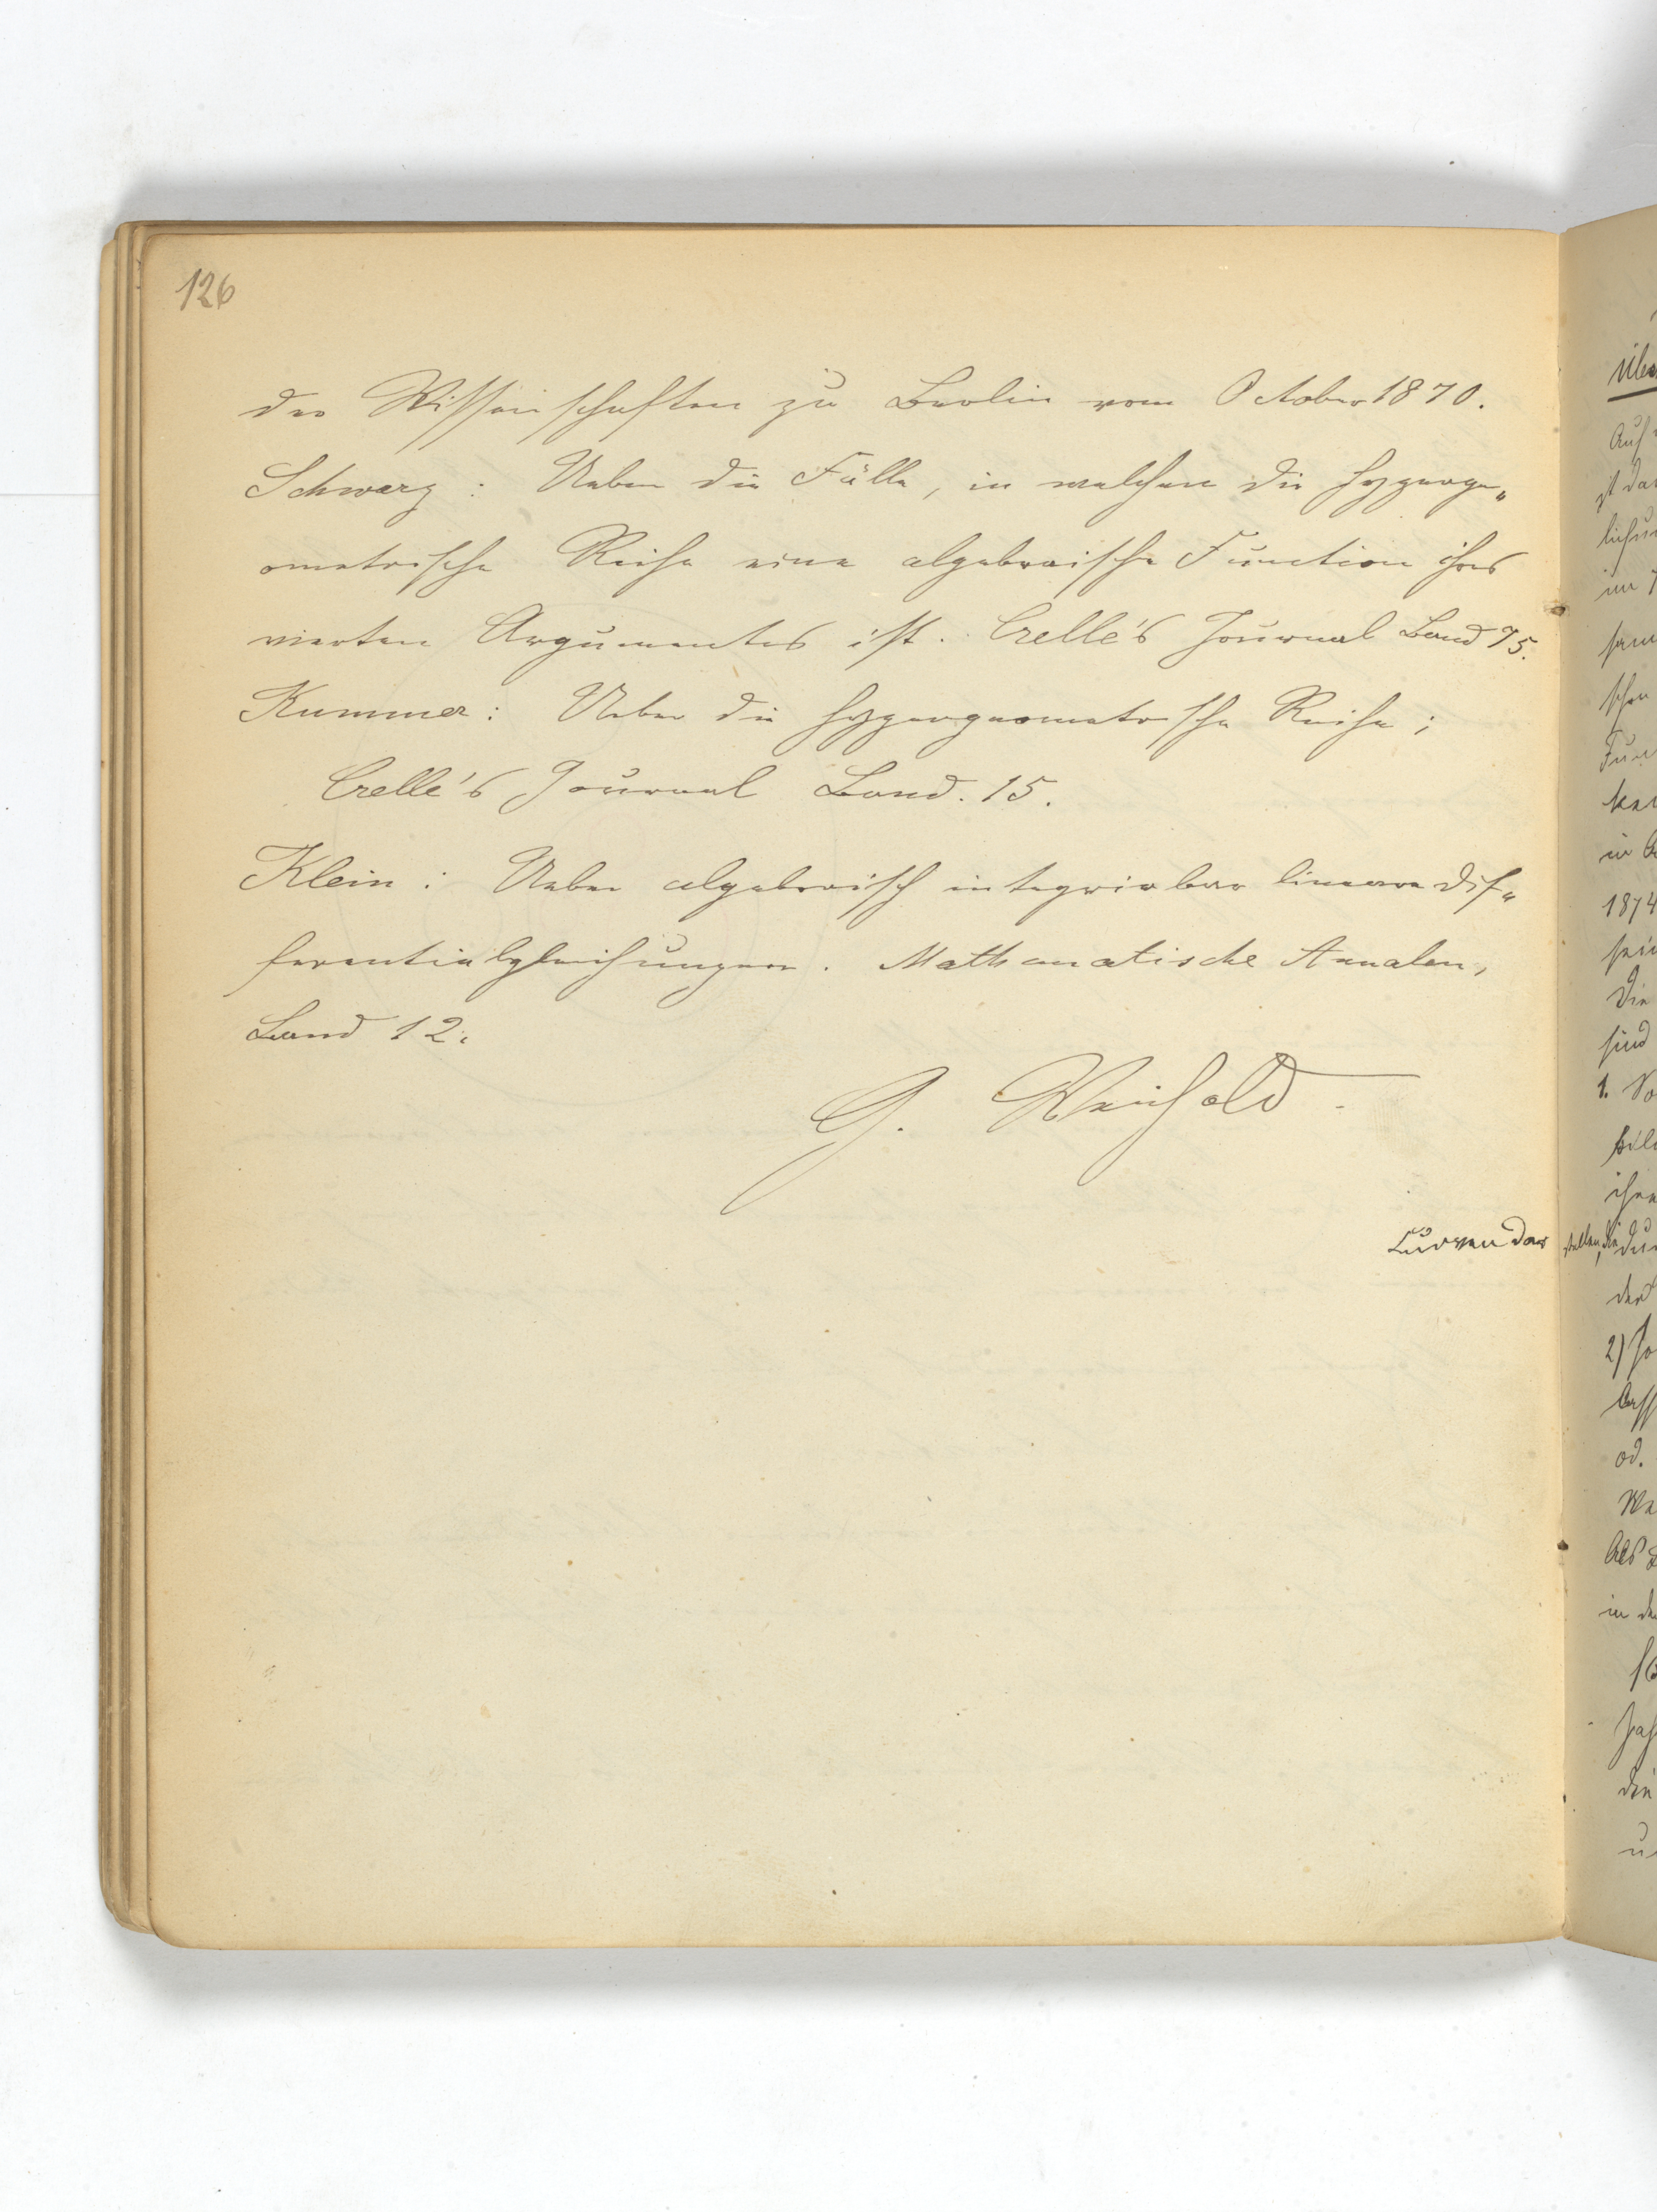 126
der Wissenschaften zu Berlin vom October 1870.
Schwarz: Ueber die Fälle, in welchen die hyperge„
ometrische Reihe eine algebraische Function ihres
vierten Argumentes ist. Crelle's Journal Band 75.
Kummer: Ueber die hypergeometrische Reihe;
Crelle's Journal Band. 15.
Klein: Ueber algebraisch integrirbare lineare Dif„
ferentialgleichungen. Mathematische Annalen,
Band 12.
G. Weichold
Curven dar stellen, die
Auf
ist das
im
schen
in
1874
Die
sind
1.
der
2)
od.
in
die